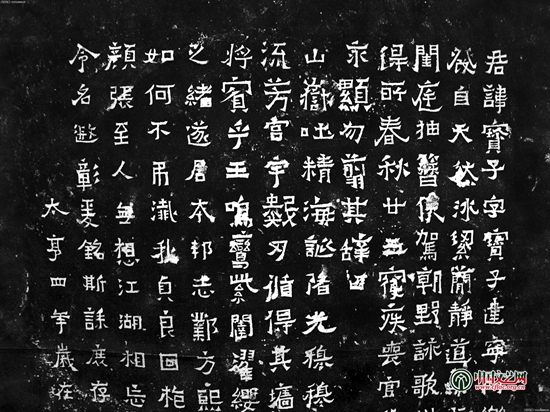 君諱寶子字寶子建寧同
發自天然冰潔簡靜道兼
閨庭抽簪俟駕朝野詠歌
得所春秋廿五寢疾喪官
永顯勿翦其辭曰
山嶽吐精海誕陼光穆穆
流芳宮宇數仞循得其墻
將賓乎王鳴鸞紫闥濯纓
之緒遂居本邦志鄴方熙
如何不弔殲我貞良回抱
顏張至人無想江湖相忘
令名遐彰爰銘斯誄庶存
太亨四年歲在
中国文艺网